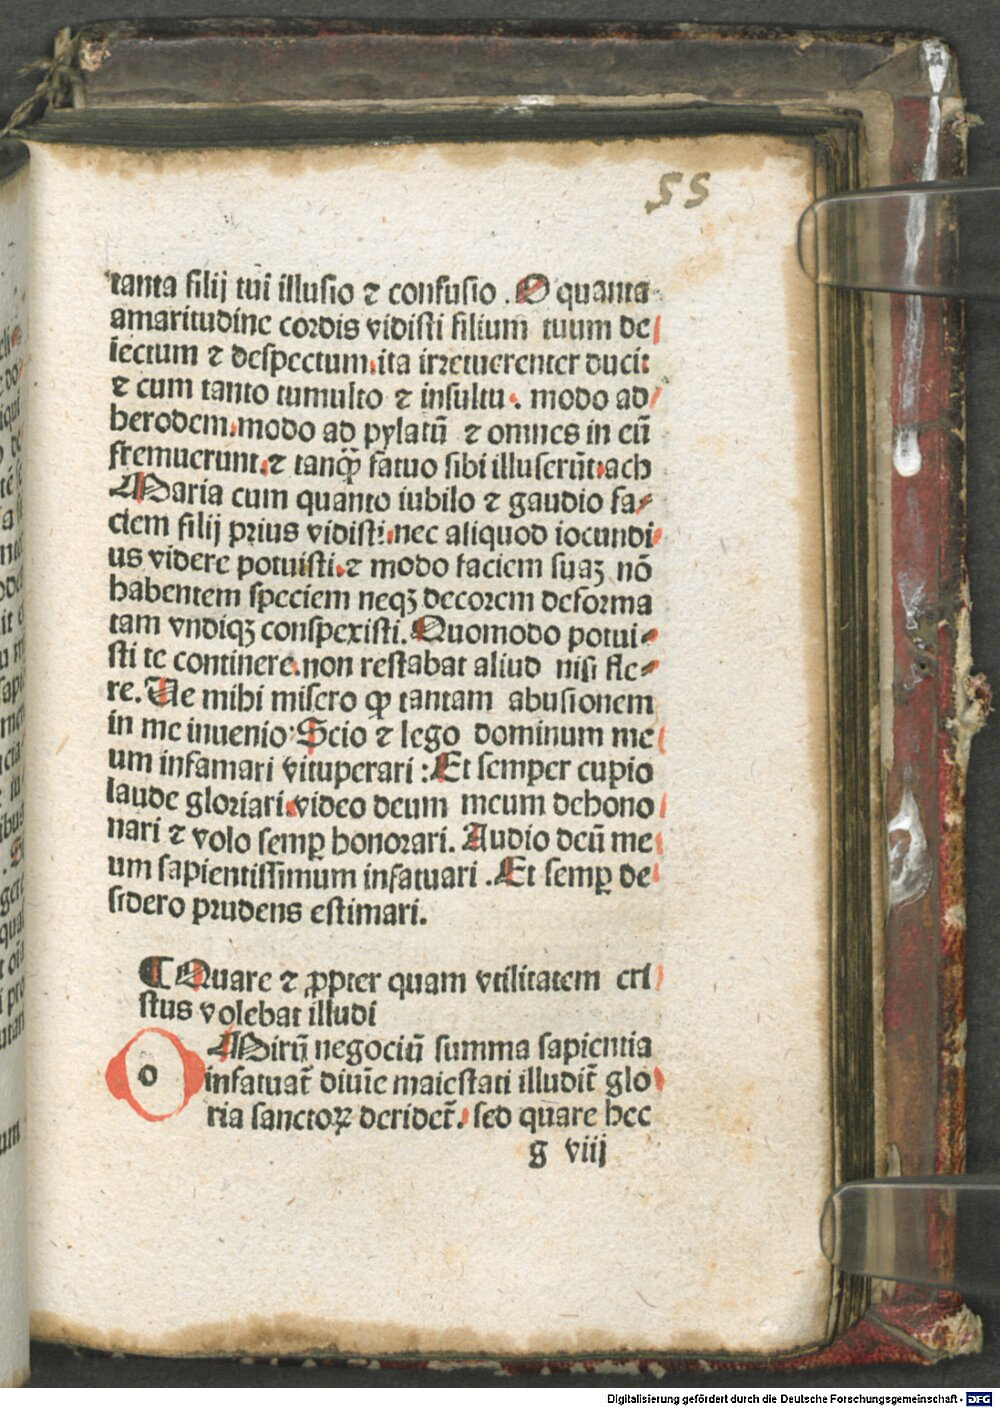 55
tanta filij tui illusio ⁊ confusio . O quanta
amaritudine cordis vidisti filium tuum de
iectum ⁊ despectum. ita irreuerenter duci:
⁊ cum tanto tumulto ⁊ insultu . modo ad
herodem. modo ad pylatū ⁊ omnes in eū
fremuerunt. ⁊ tanꝙ̄ fatuo sibi illuserūt. ach
Maria cum quanto iubilo ⁊ gaudio fa-
ciem filij prius vidisti. nec aliquod iocundi
us videre potuisti. ⁊ modo faciem suaꝫ nō
habentem speciem neqꝫ decorem deforma
tam vndiqꝫ conspexisti. Quomodo potui-
sti te continere. non restabat aliud nisi fle-
re. Ue mihi misero ꝙ tantam abusionem
in me inuenio. Scio ⁊ lego dominum me
um infamari vituperari : Et semper cupio
laude gloriari. video deum meum dehono
nari ⁊ volo semꝑ honorari. Audio deū me
um sapientissimum infatuari . Et semꝑ de
sidero prudens estimari.
¶ Quare ⁊ ꝓpter quam vtilitatem cri
stus volebat illudi
o Mirū negociū summa sapientia
infatuat̄ diuīe maiestati illudit̄ glo
ria sanctoꝝ deridet̄. sed quare hec
g viij
Digitalisierung gefördert durch die Deutsche Forschungsgemeinschaft - DFG